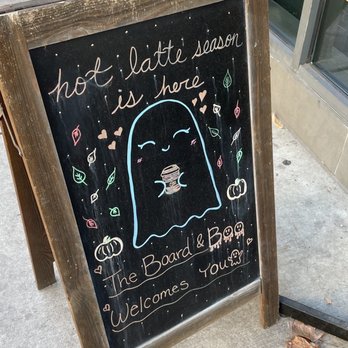 hot latte season
is here
The Board & Boo
Welcomes You